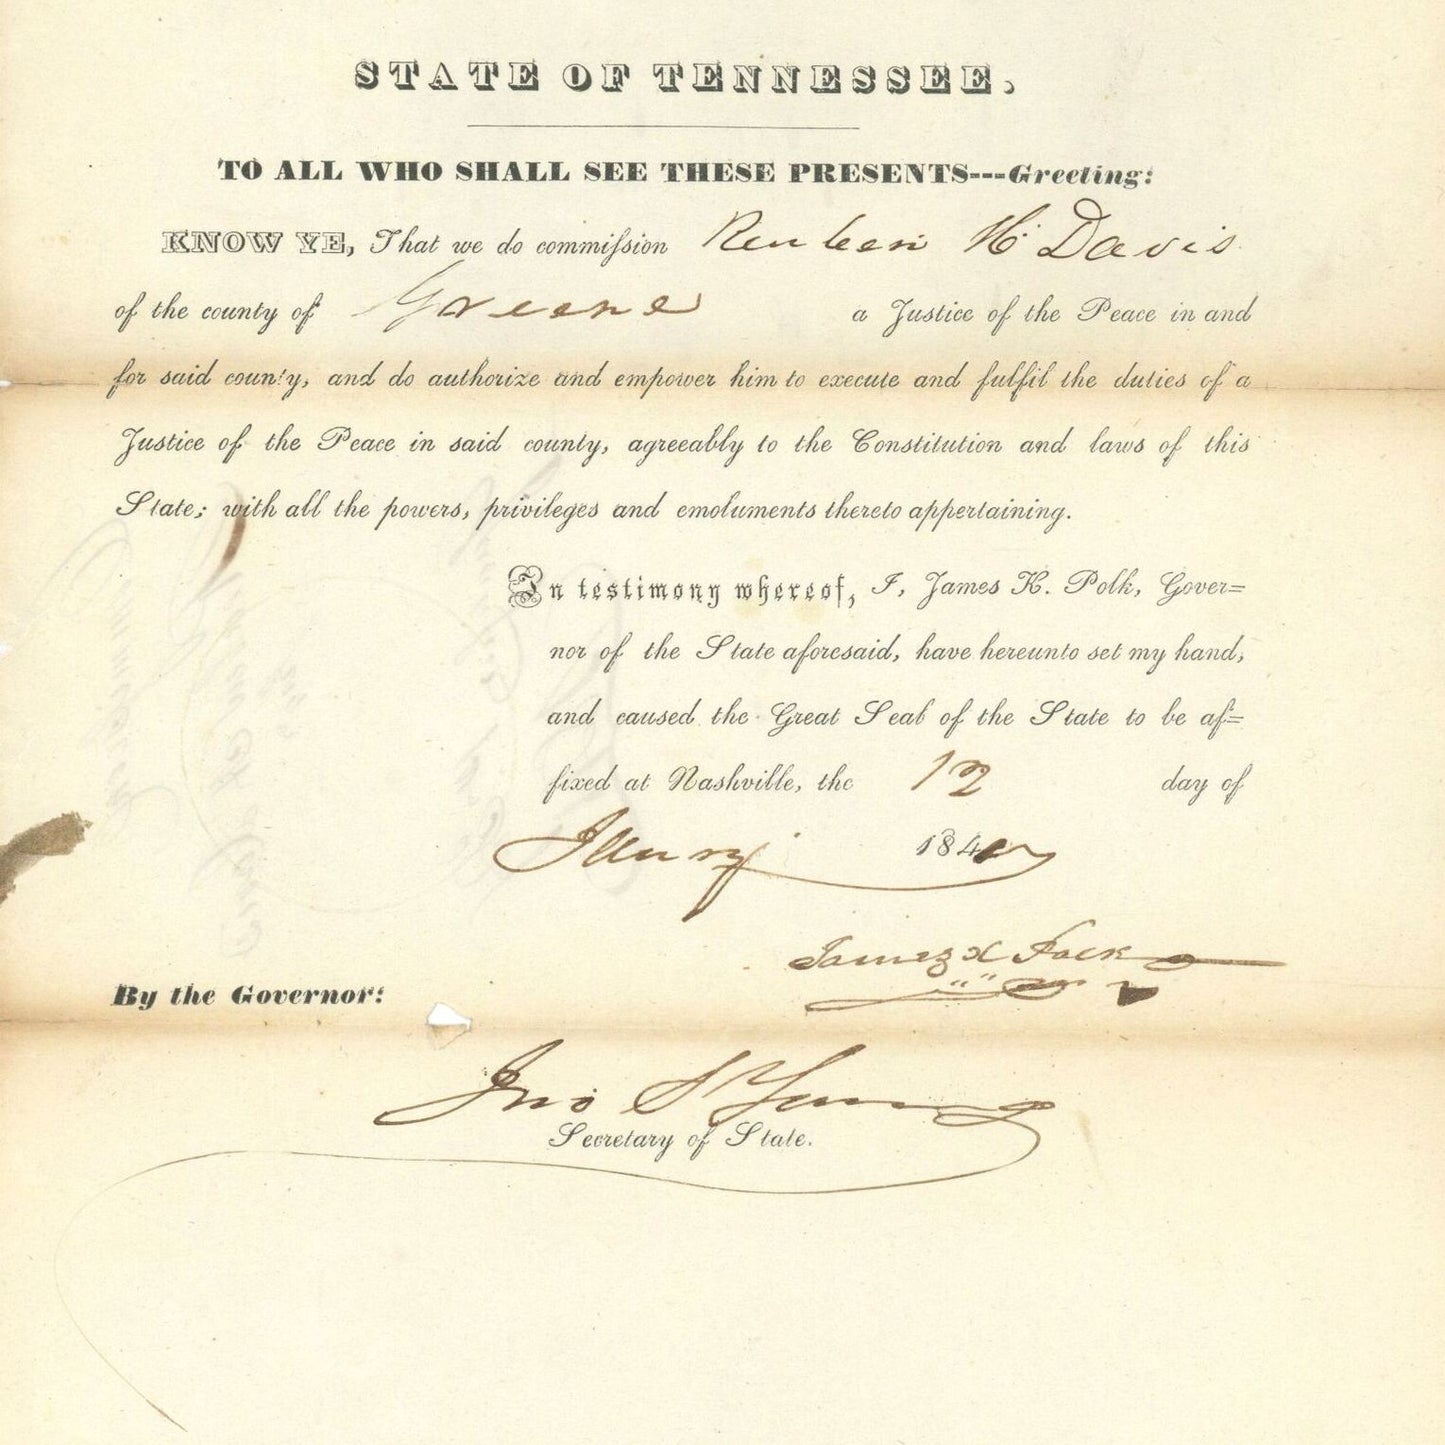 STATE OF TENNESSEE.
TO ALL WHO SHALL SEE THESE PRESENTS---Greeting:
KNOW YE, That we do commission Reuben H Davis
of the county of Greene a Justice of the Peace in and
for said county, and do authorize and empower him to execute and fulfil the duties of a
Justice of the Peace in said county, agreeably to the Constitution and laws of this
State; with all the powers, privileges and emoluments thereto appertaining.
In testimony whereof, I, James K. Polk, Gover=
nor of the State aforesaid, have hereunto set my hand,
and caused the Great Seal of the State to be af=
fixed at Nashville, the 12 day of
184
James K Polk
By the Governor:
Jno S Young
Secretary of State.